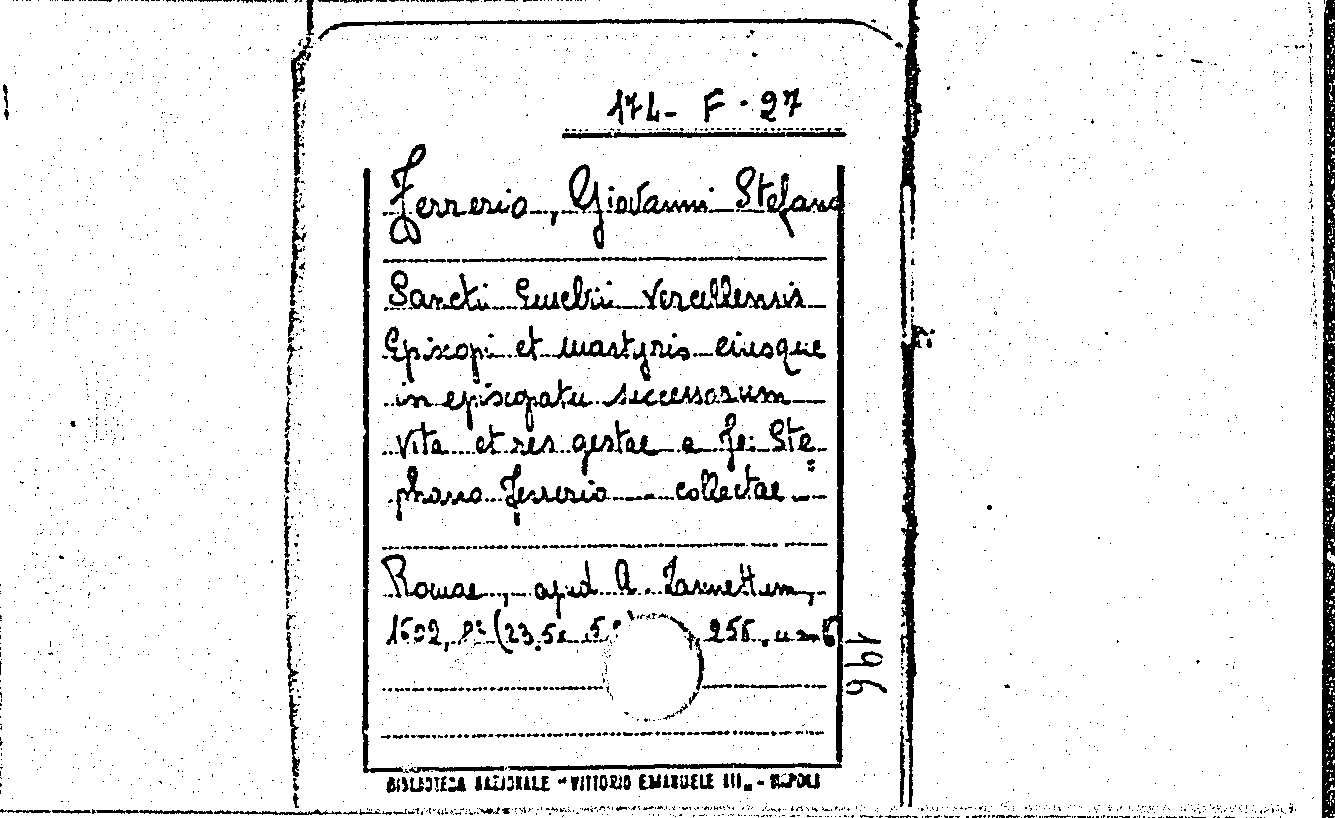 174- F. 27
Ferrerio, Giovanni Stefano
Sancti Eusebii Vercellensis
Episcopi et martyris eiusque
in episcopatu successorum
vita et res gestae a Jo: Ste=
phano Ferrerio collectae
Romae, apud A. Zannettum,
1602, 8º (23,5x 256
196
BIBLIOTECA NAZIONALE "VITTORIO EMANUELE III„ - NAPOLI